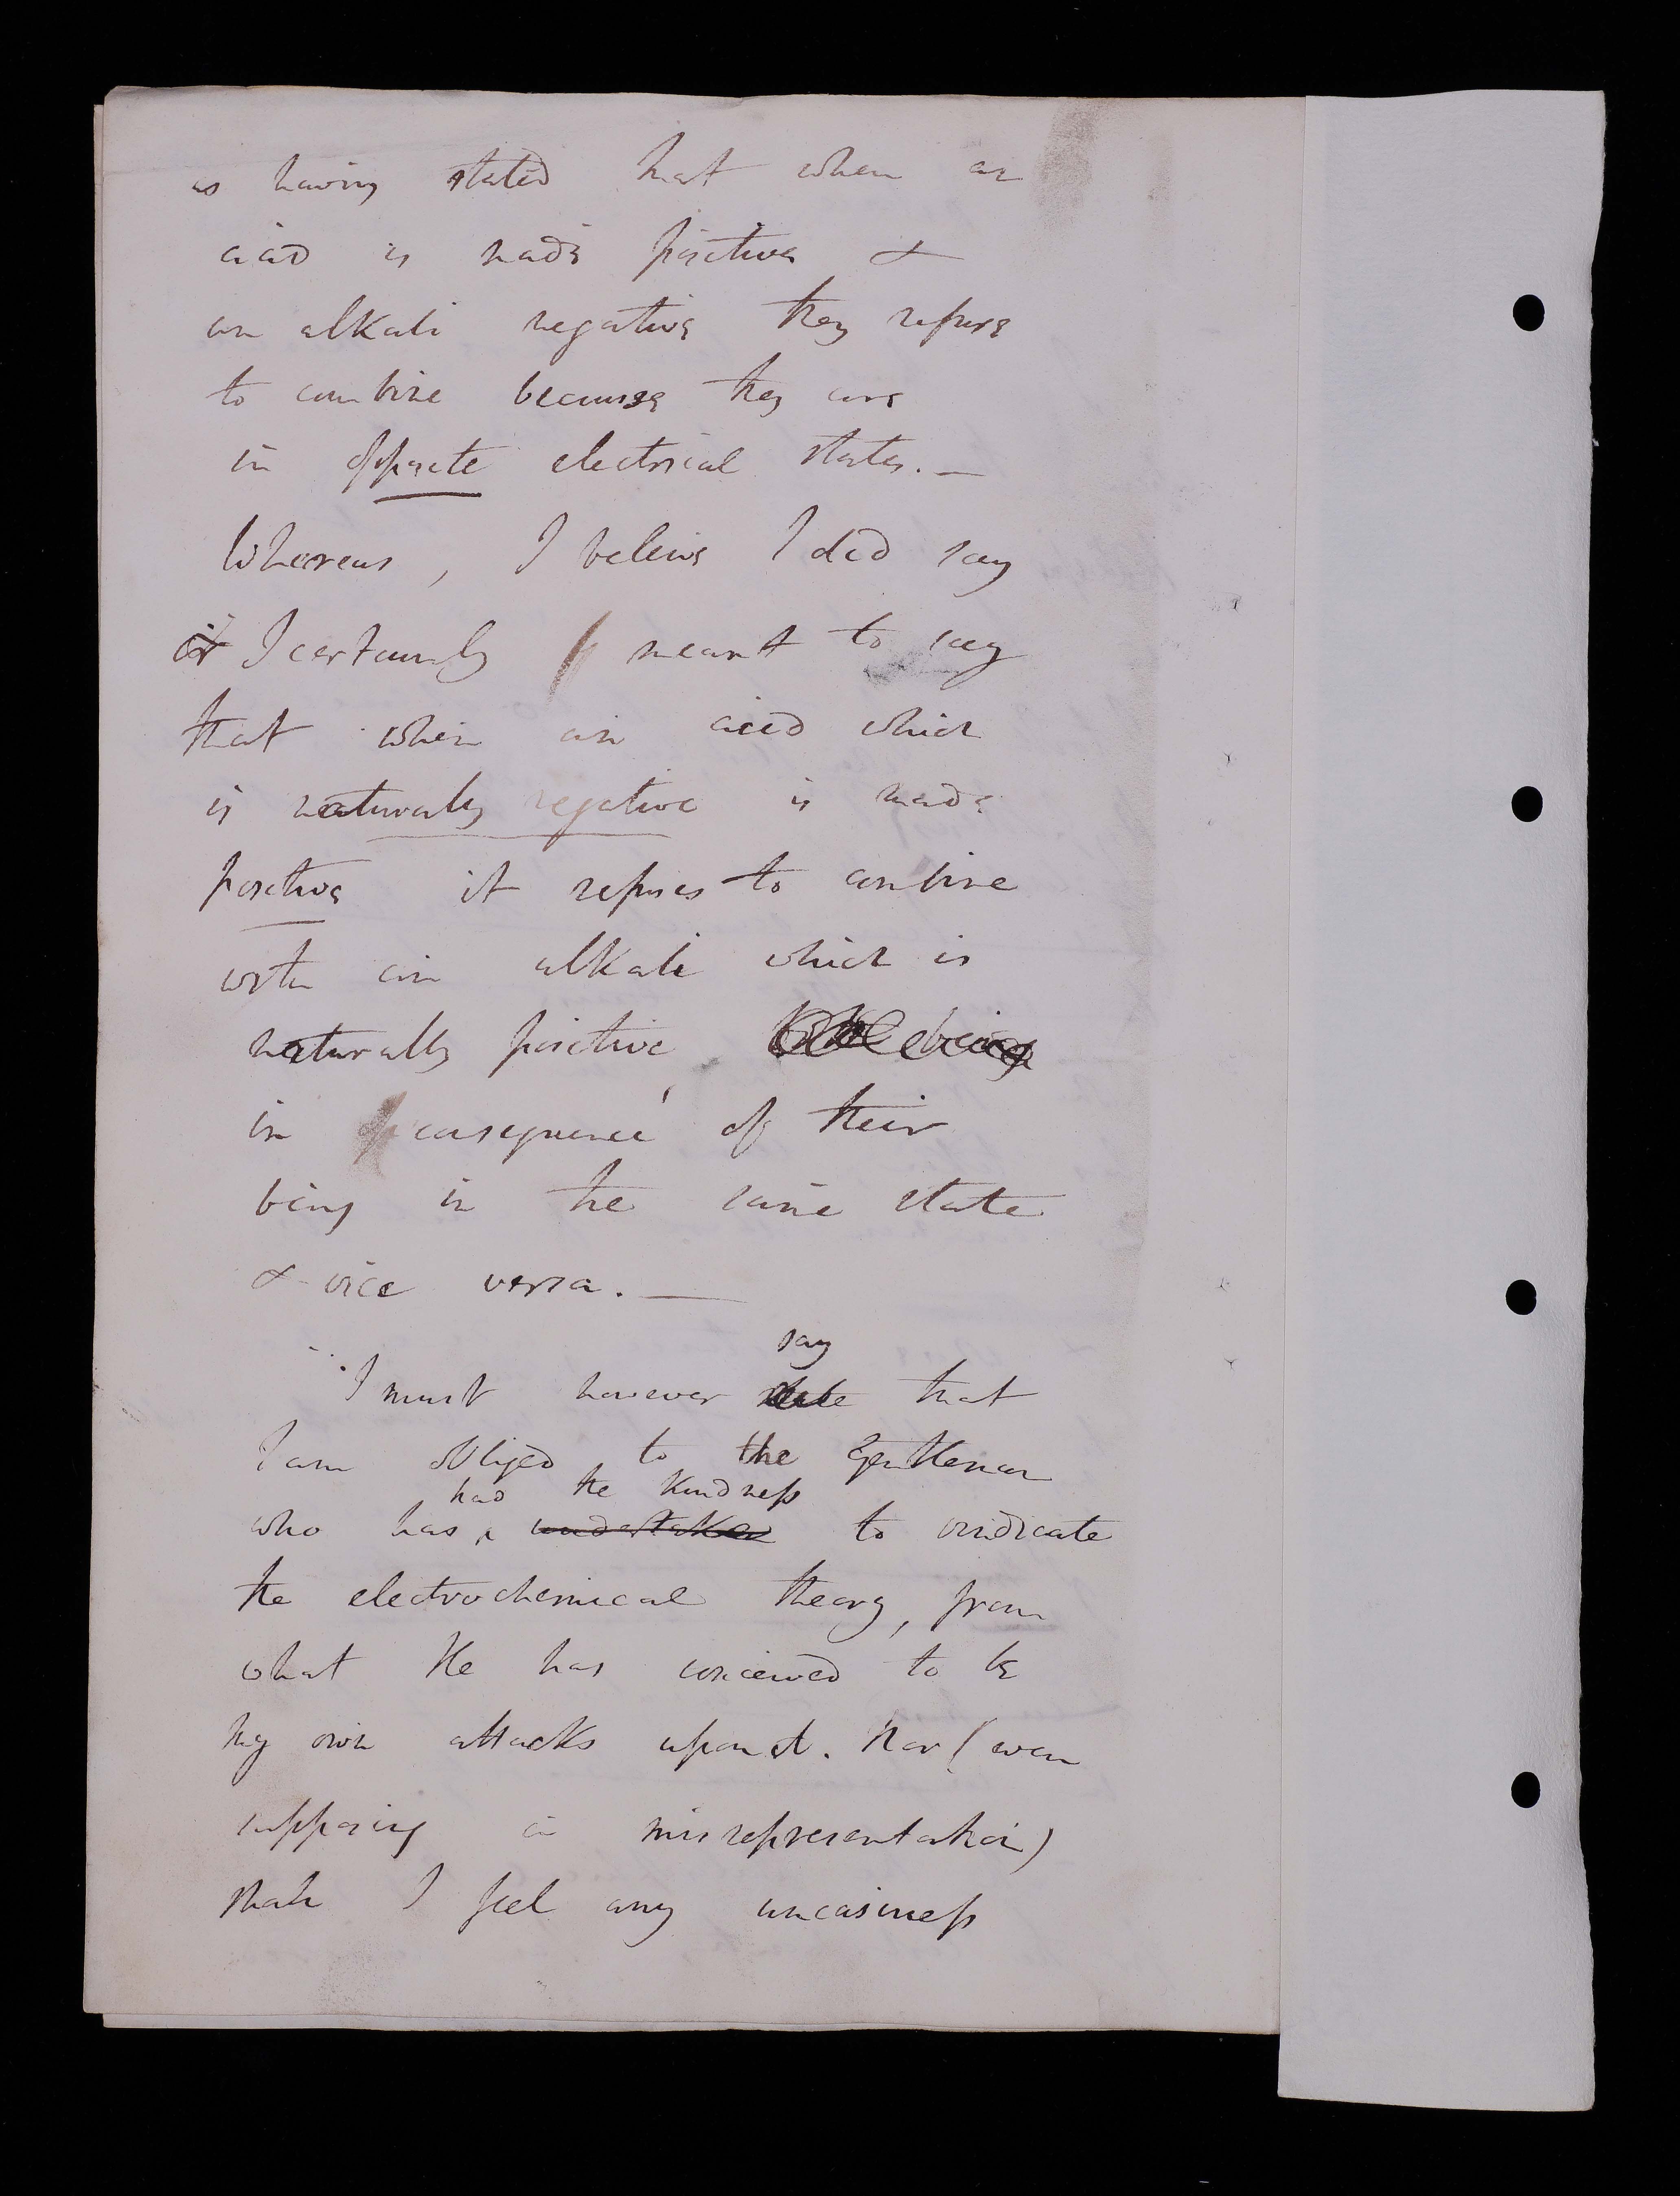 as having stated that when an
acid is made positive &
an alkali negative they refuse
to combine because they are
in opposite electrical states. —
Whereas, I believe I did say
it I certainly meant to say
that when an acid which
is naturally negative is made
positive it refuses to combine
with an alkali which is
naturally positive being
in consequence of their
being in the same state
& vice versa. —
say
I must however state that
I am obliged to the Gentleman
had the kindness
who has undertaken to vindicate
the electrochemical theory, from
what He has conceived to be
my own attacks upon it. Nor (even
supposing a misrepresentation)
shall I feel any uneasiness